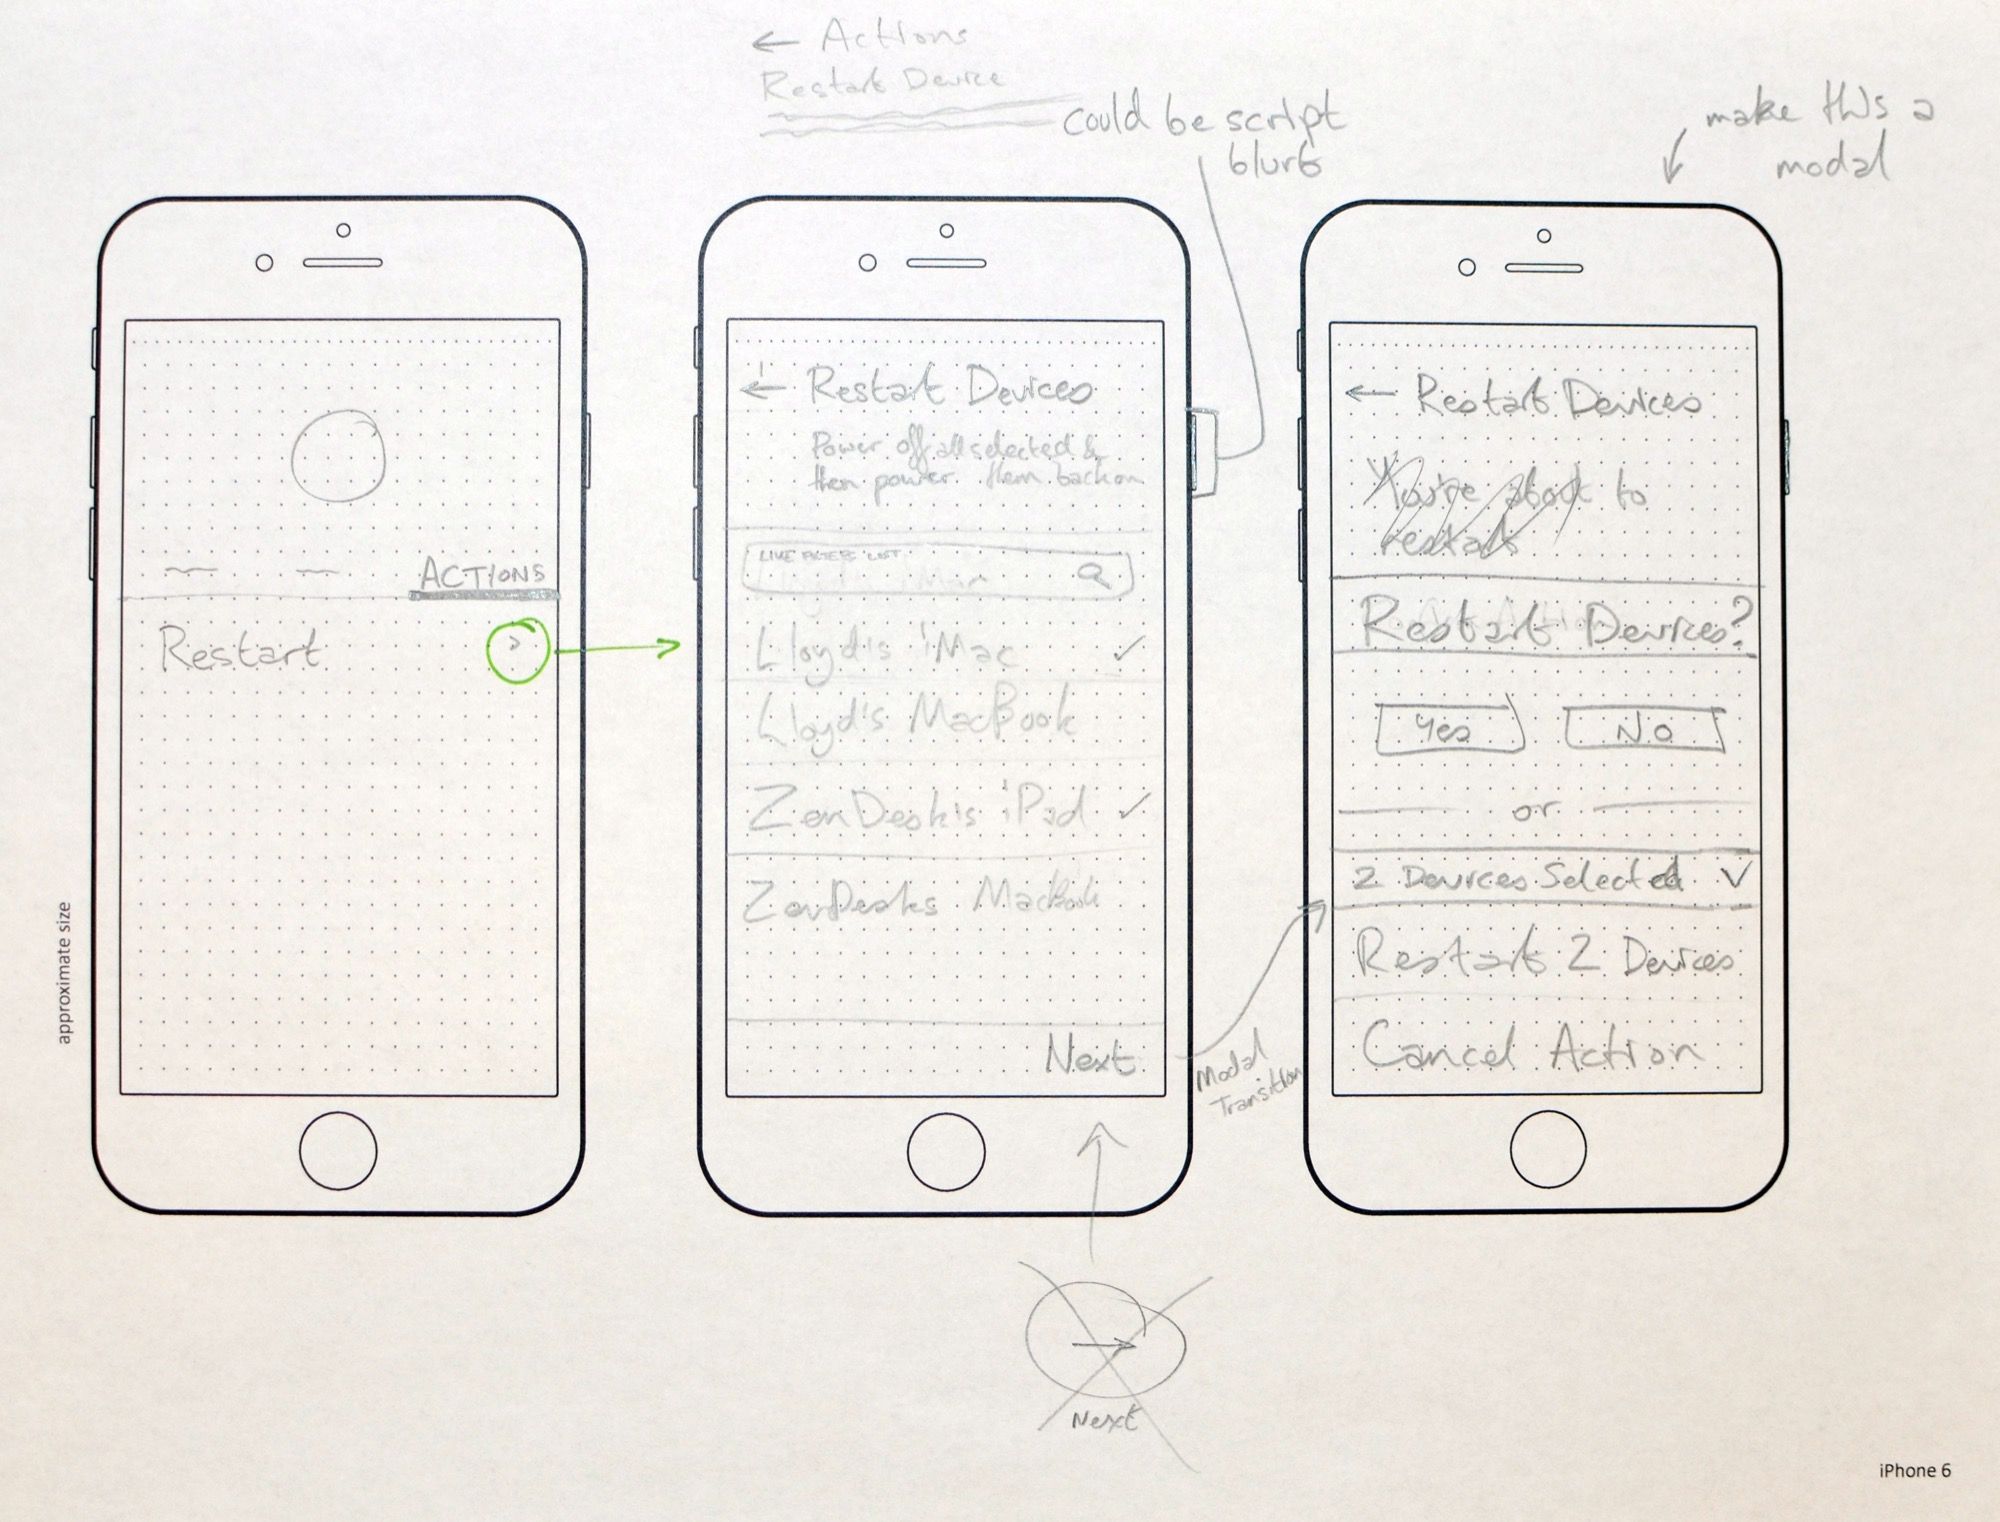 ← Actions
Restart Device
could be script
blurb
make this a
modal
ACTIONS
Restart >
← Restart Devices
Power off all selected &
then power them back on
LIVE FILTERS LIST
Lloyd's iMac ✓
Lloyd's MacBook
ZenDesk's iPad ✓
ZenDesks MacBook
Next
Modal
Transition
→
Next
← Restart Devices
You're about to
restart
Restart Devices?
Yes No
or
2 Devices Selected ∨
Restart 2 Devices
Cancel Action
approximate size
iPhone 6